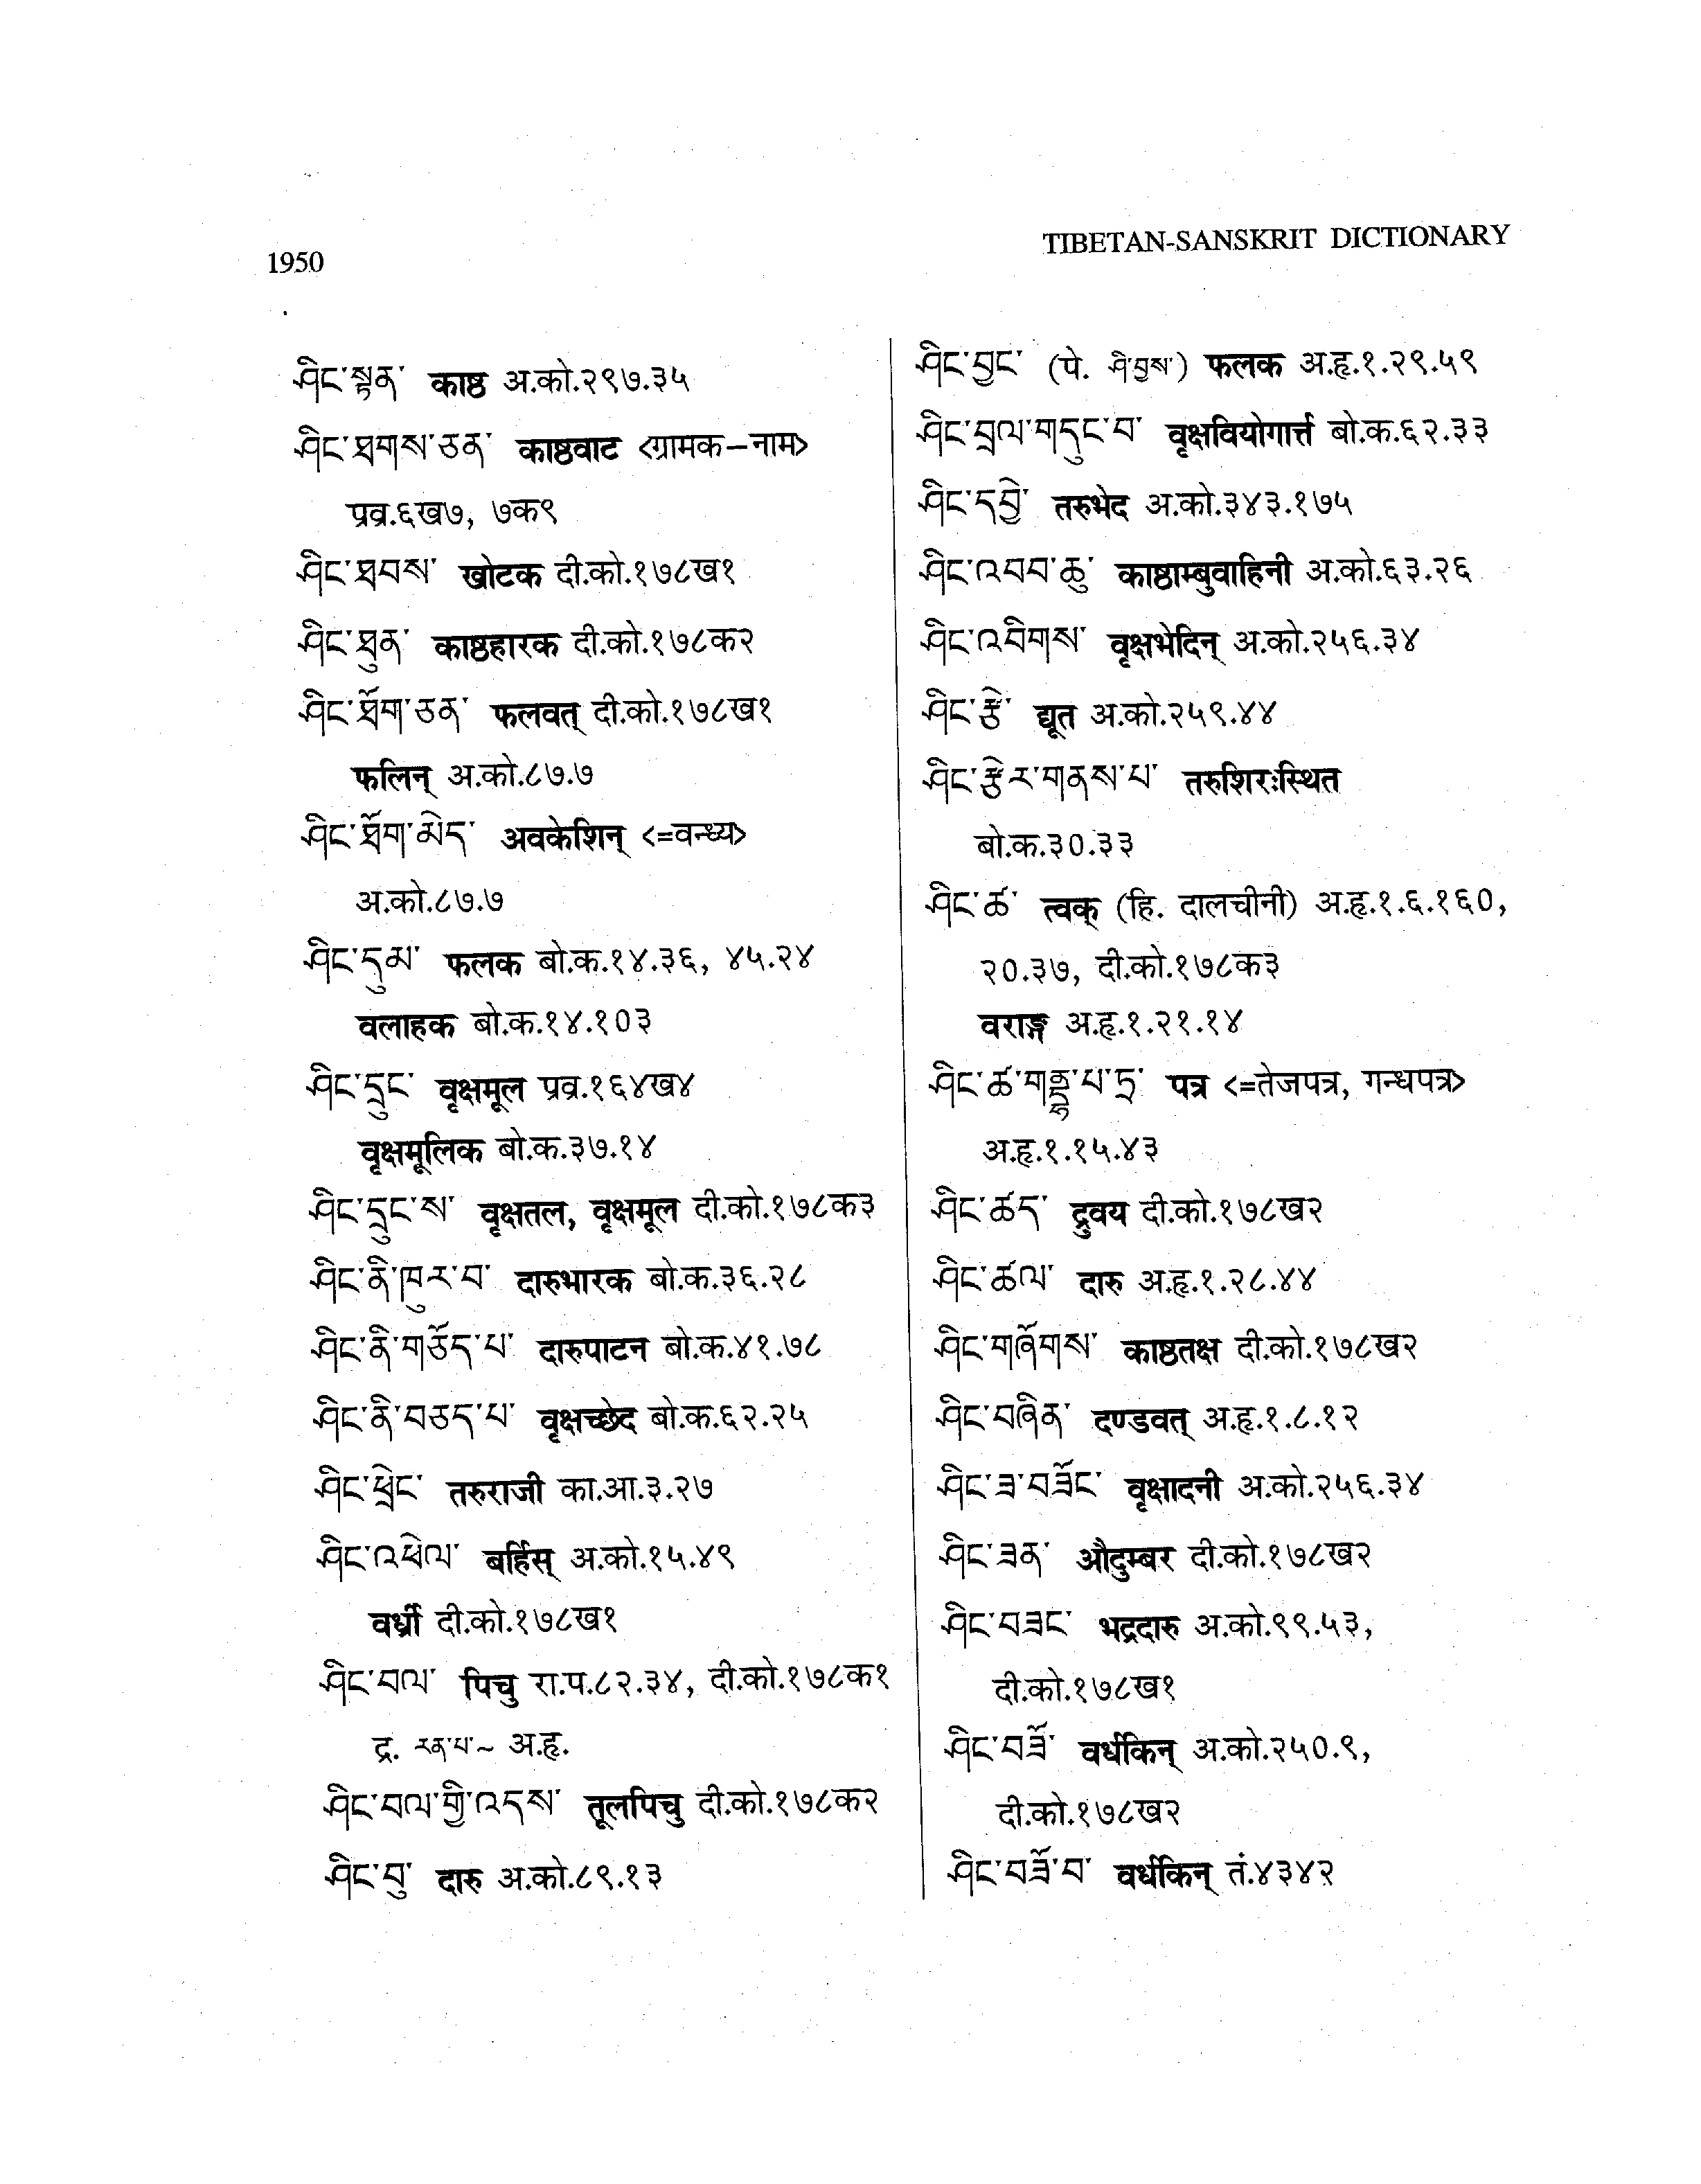 1950
TIBETAN-SANSKRIT DICTIONARY
ཤིང་སྟན་ काष्ठ अ.को.२९७.३५
ཤིང་ཐགས་ཅན་ काष्ठवाट <ग्रामक–नाम>
प्रव्र.६ख७, ७क९
ཤིང་ཐབས་ खोटक दी.को.१७८ख१
ཤིང་ཐུན་ काष्ठहारक दी.को.१७८क२
ཤིང་ཐོག་ཅན་ फलवत् दी.को.१७८ख१
फलिन् अ.को.८७.७
ཤིང་ཐོག་མེད་ अवकेशिन् <=वन्ध्य>
अ.को.८७.७
ཤིང་དུམ་ फलक बो.क.१४.३६, ४५.२४
वलाहक बो.क.१४.१०३
ཤིང་དྲུང་ वृक्षमूल प्रव्र.१६४ख४
वृक्षमूलिक बो.क.३७.१४
ཤིང་དྲུང་ས་ वृक्षतल, वृक्षमूल दी.को.१७८क३
ཤིང་ནི་ཁུར་བ་ दारुभारक बो.क.३६.२८
ཤིང་ནི་གཅོད་པ་ दारुपाटन बो.क.४१.७८
ཤིང་ནི་བཅད་པ་ वृक्षच्छेद बो.क.६२.२५
ཤིང་ཕྲེང་ तरुराजी का.आ.३.२७
ཤིང་འཕེལ་ बर्हिस् अ.को.१५.४९
वर्ध्री दी.को.१७८ख१
ཤིང་བལ་ पिचु रा.प.८२.३४, दी.को.१७८क१
द्र. རན་པ་~ अ.हृ.
ཤིང་བལ་གྱི་འདས་ तूलपिचु दी.को.१७८क२
ཤིང་བུ་ दारु अ.को.८९.१३
ཤིང་བྱང་ (पे. ཤི་བྱས་) फलक अ.हृ.१.२९.५९
ཤིང་བྲལ་གདུང་བ་ वृक्षवियोगार्त्त बो.क.६२.३३
ཤིང་དབྱེ་ तरुभेद अ.को.३४३.१७५
ཤིང་འབབ་ཆུ་ काष्ठाम्बुवाहिनी अ.को.६३.२६
ཤིང་འབིགས་ वृक्षभेदिन् अ.को.२५६.३४
ཤིང་རྩེ་ द्यूत अ.को.२५९.४४
ཤིང་རྩེར་གནས་པ་ तरुशिरःस्थित
बो.क.३०.३३
ཤིང་ཚ་ त्वक् (हि. दालचीनी) अ.हृ.१.६.१६०,
२०.३७, दी.को.१७८क३
वराङ्ग अ.हृ.१.२१.१४
ཤིང་ཚ་གནྡྷ་པ་ཏྲ་ पत्र <=तेजपत्र, गन्धपत्र>
अ.हृ.१.१५.४३
ཤིང་ཚད་ द्रुवय दी.को.१७८ख२
ཤིང་ཚལ་ दारु अ.हृ.१.२८.४४
ཤིང་གཞོགས་ काष्ठतक्ष दी.को.१७८ख२
ཤིང་བཞིན་ दण्डवत् अ.हृ.१.८.१२
ཤིང་ཟ་བཟོང་ वृक्षादनी अ.को.२५६.३४
ཤིང་ཟན་ औदुम्बर दी.को.१७८ख२
ཤིང་བཟང་ भद्रदारु अ.को.९९.५३,
दी.को.१७८ख१
ཤིང་བཟོ་ वर्धकिन् अ.को.२५०.९,
दी.को.१७८ख२
ཤིང་བཟོ་བ་ वर्धकिन् तं.४३४२